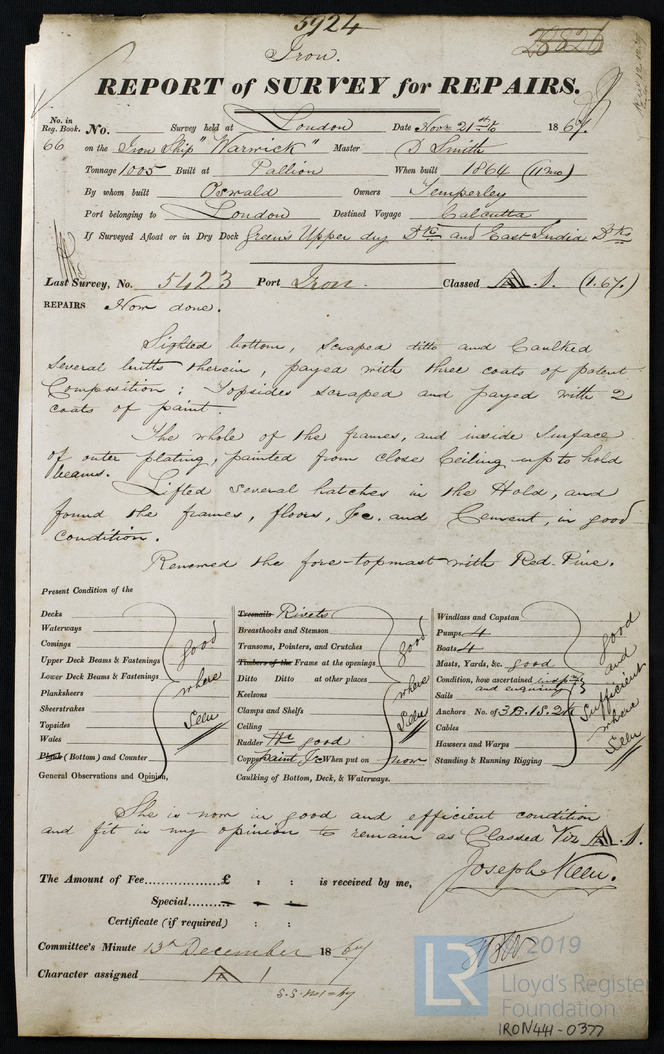 5924
Iron.
REPORT of SURVEY for REPAIRS.
No. in Reg. Book. No. Survey held at London Date Novr 21st 1867.
66 on the Iron Ship "Warwick" Master D Smith
Tonnage 1005 Built at Pallion When built 1864 (11mo)
By whom built Oswald Owners Temperley
Port belonging to London Destined Voyage Calcutta
If Surveyed Afloat or in Dry Dock Green's Upper dry Dk and East India Dks
Last Survey, No. 5423 Port Iron. Classed A.1. (1.67)
REPAIRS Now done.
Sighted bottom, scraped ditto and Caulked
several butts therein, payed with three coats of patent
Composition; Topsides scraped and payed with 2
coats of paint.
The whole of the frames, and inside surface
of outer plating, painted from close Ceiling up to hold
beams. Lifted several hatches in the Hold, and
found the frames, floors, &c. and Cement, in good
condition.
Renewed the fore-topmast with Red Pine.
Present Condition of the
Decks
Waterways
Comings
Upper Deck Beams & Fastenings
Lower Deck Beams & Fastenings
Planksheers
Sheerstrakes
Topsides
Wales
Plank (Bottom) and Counter
good
where
seen
General Observations and Opinion,
Treenails Rivets
Breasthooks and Stemson
Transoms, Pointers, and Crutches
Timbers of the Frame at the openings
Ditto Ditto at other places
Keelsons
Clamps and Shelfs
Ceiling
Rudder good
Copper Paint &c When put on now
good
where
seen
Caulking of Bottom, Deck, & Waterways.
Windlass and Capstan
Pumps 4
Boats 4
Masts, Yards, &c. good
Condition, how ascertained
and enquiring
Sails
Anchors No. of 3B. 1S. 2K
Cables
Hawsers and Warps
Standing & Running Rigging
good
and
sufficient
where
seen
She is now in good and efficient condition
and fit in my opinion to remain as Classed Viz A.1.
Joseph Keen.
The Amount of Fee............... £ : : is received by me,
Special......
Certificate (if required) : :
Committee's Minute 13th December 1867
Character assigned A 1
© 2019
LR
Lloyd's Register
Foundation
IRON441-0377